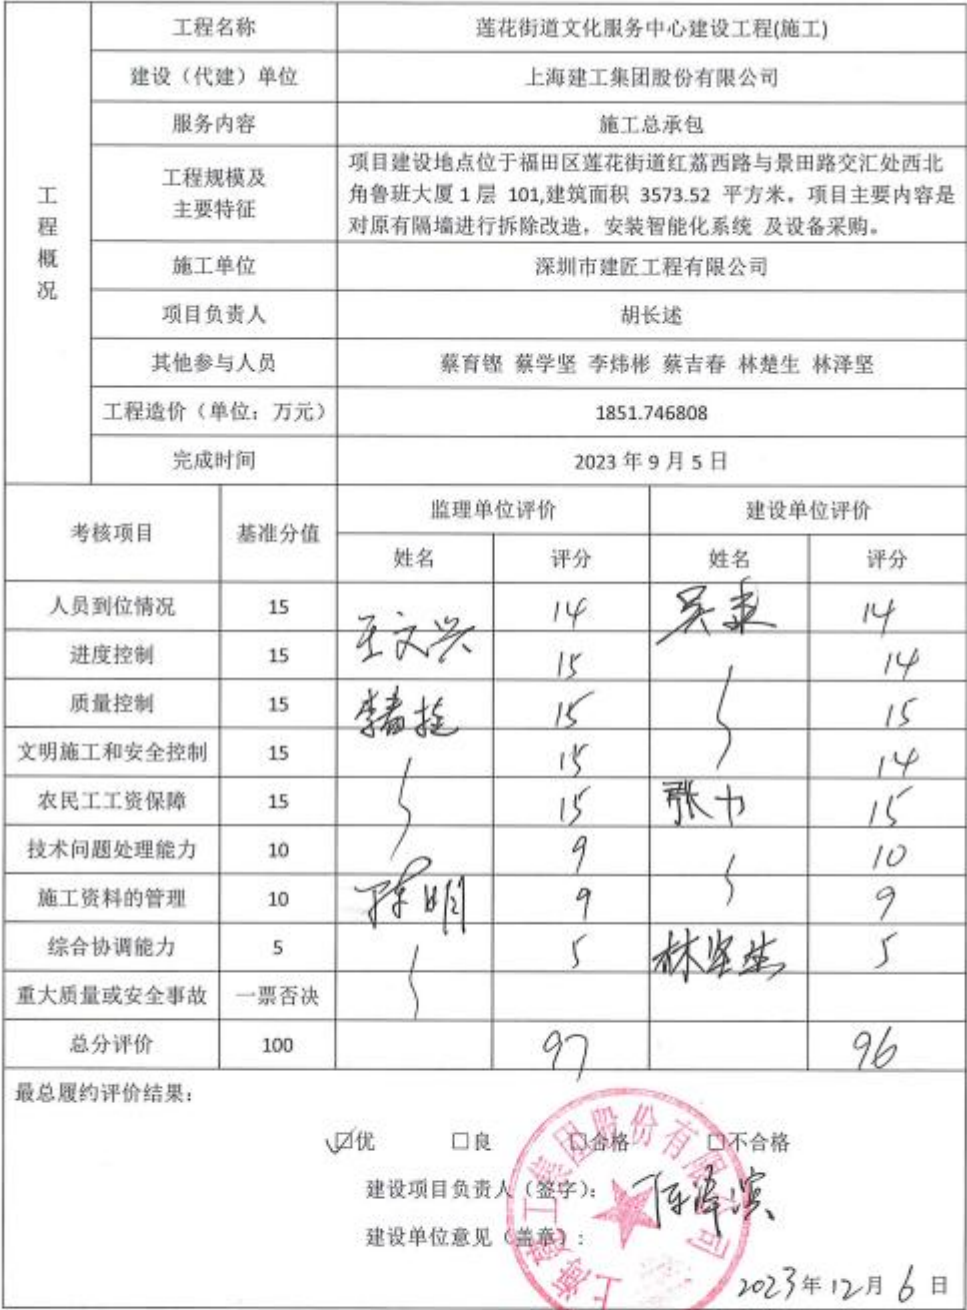 工程概况
工程名称 莲花街道文化服务中心建设工程(施工)
建设（代建）单位 上海建工集团股份有限公司
服务内容 施工总承包
工程规模及
主要特征
项目建设地点位于福田区莲花街道红荔西路与景田路交汇处西北
角鲁班大厦 1 层 101,建筑面积 3573.52 平方米。项目主要内容是
对原有隔墙进行拆除改造，安装智能化系统 及设备采购。
施工单位 深圳市建匠工程有限公司
项目负责人 胡长述
其他参与人员 蔡育铿 蔡学坚 李炜彬 蔡吉春 林楚生 林泽坚
工程造价（单位：万元） 1851.746808
完成时间 2023 年 9 月 5 日
考核项目 基准分值 监理单位评价 建设单位评价
姓名 评分 姓名 评分
人员到位情况 15 王文兴 14 14
进度控制 15 15 14
质量控制 15 15 15
文明施工和安全控制 15 15 14
农民工工资保障 15 15 张力 15
技术问题处理能力 10 9 10
施工资料的管理 10 陈明 9 9
综合协调能力 5 5 5
重大质量或安全事故 一票否决
总分评价 100 97 96
最总履约评价结果：
☑优 □良 □合格 □不合格
建设项目负责人（签字）：陈泽滨
建设单位意见（盖章）：
上海建工集团股份有限公司
2023年12月6日